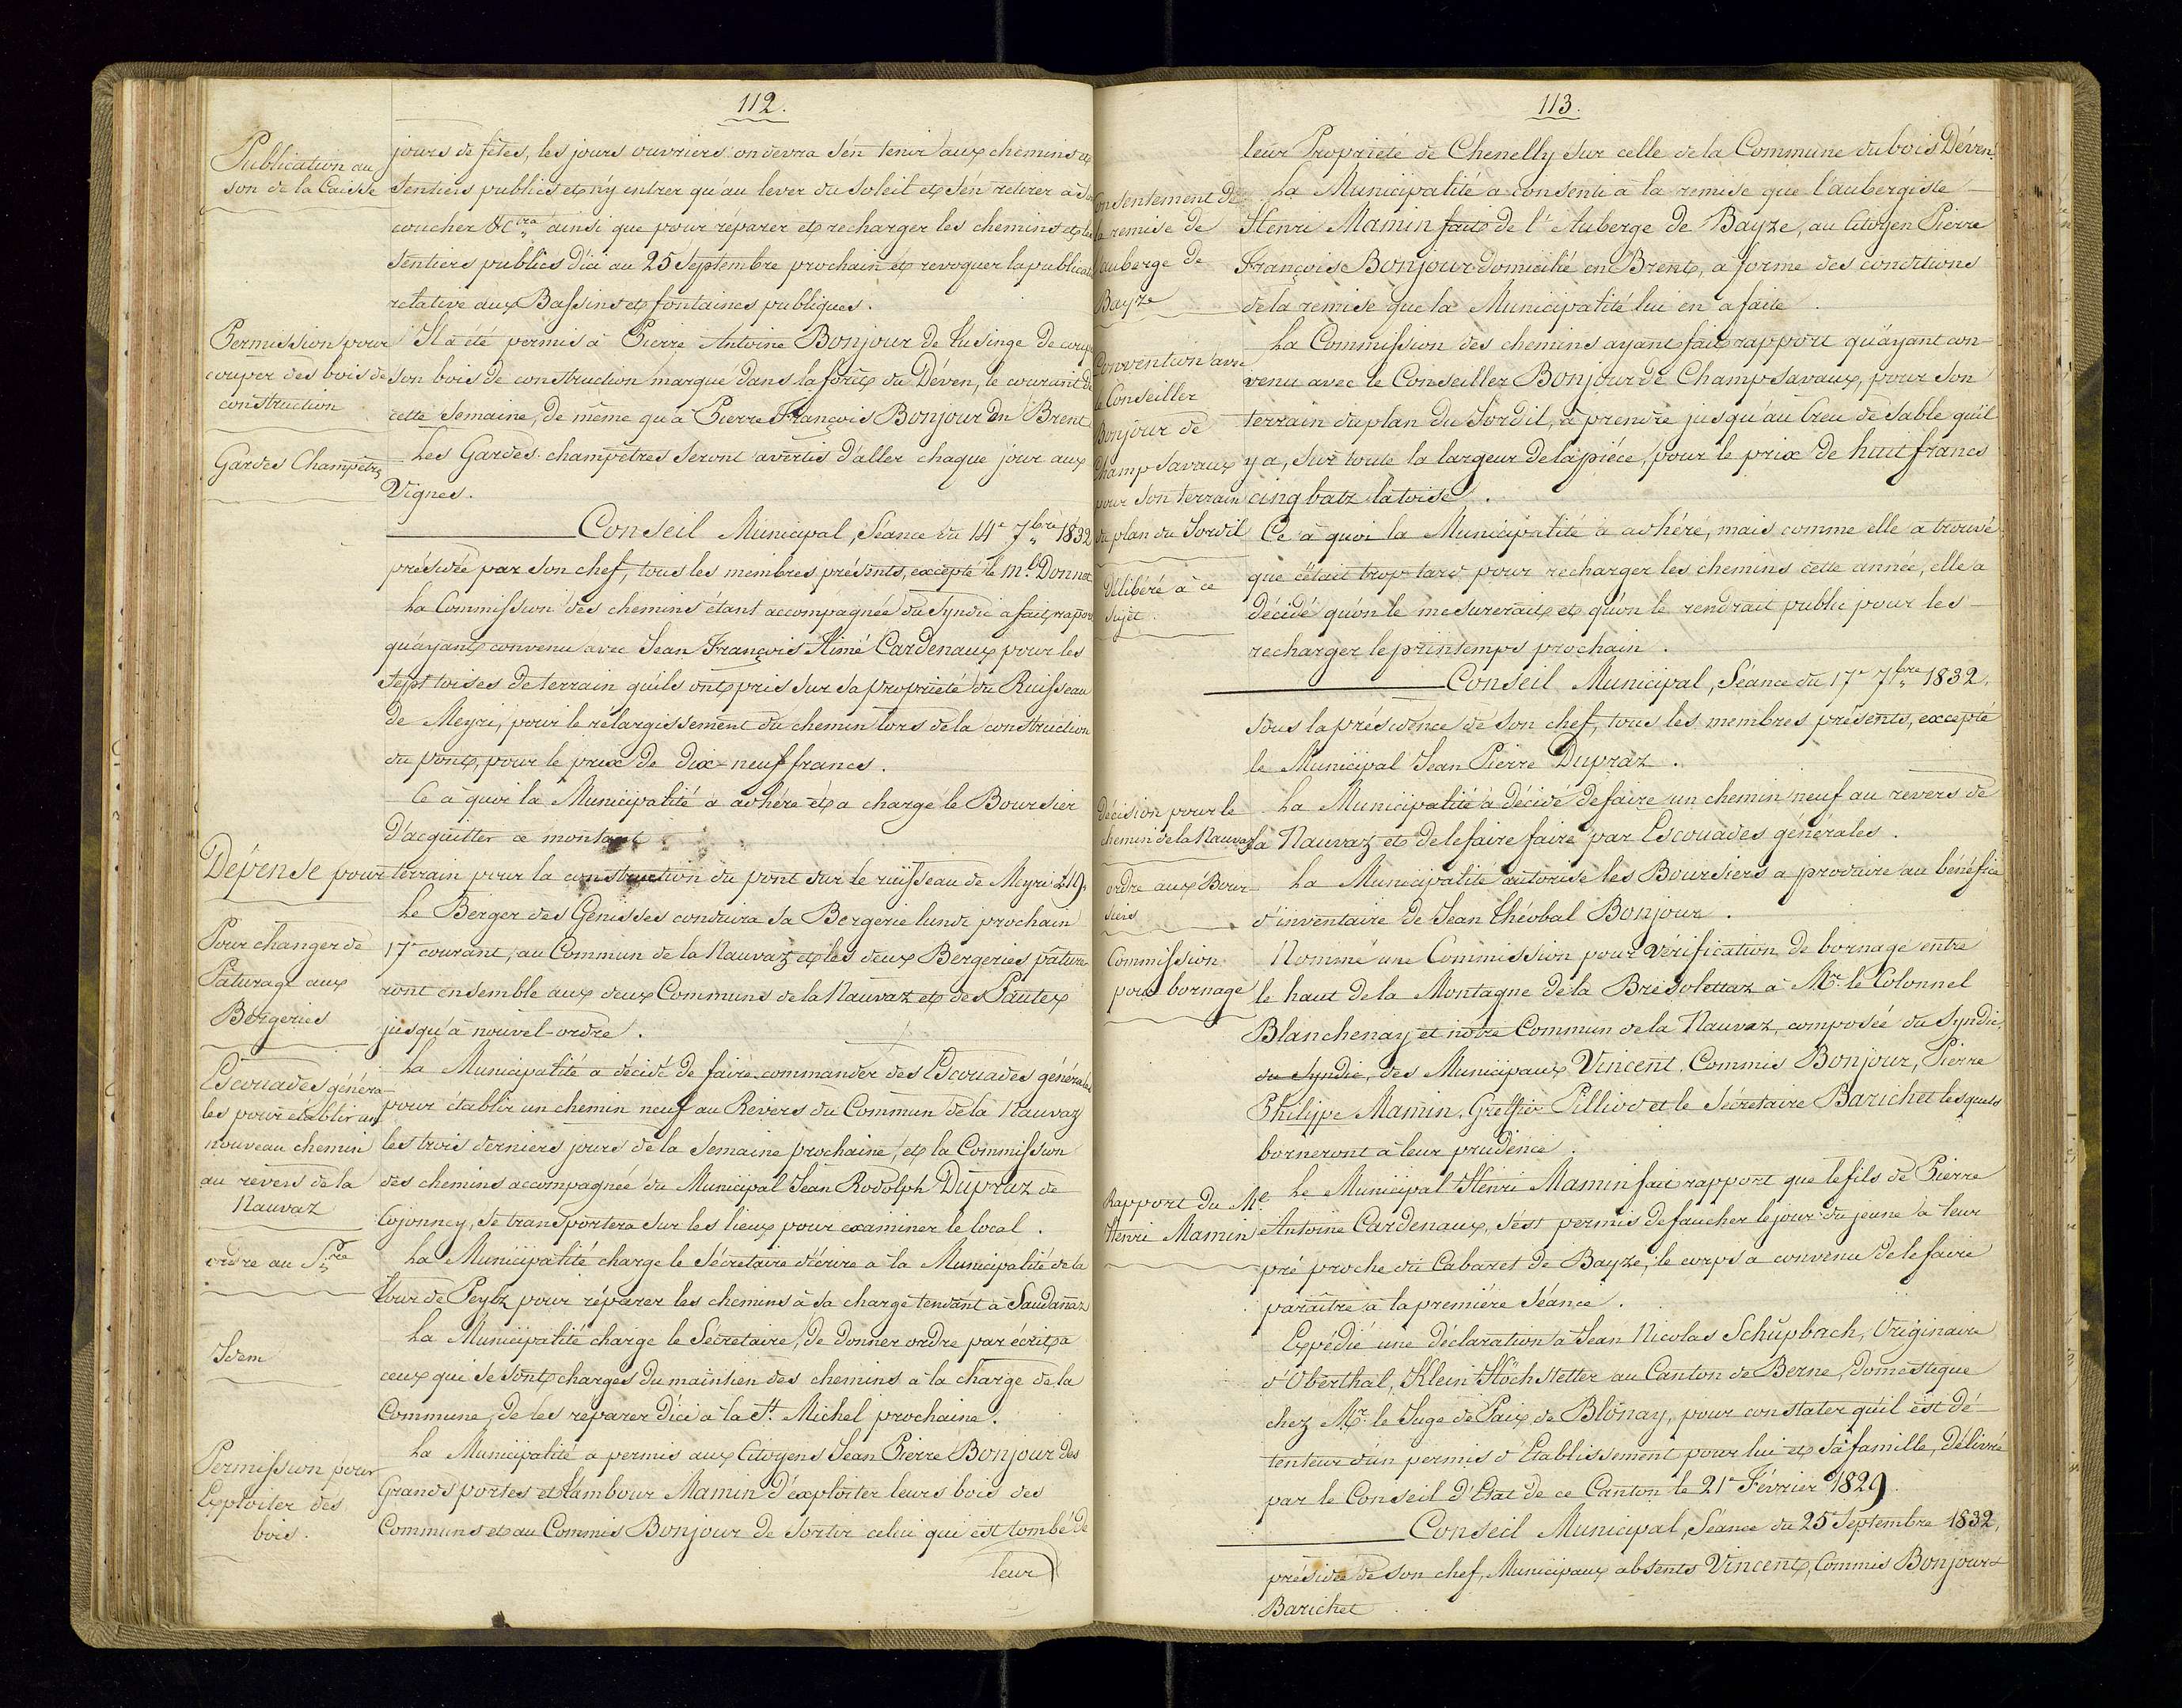 112.
Publication au
son de la Caisse
jours de fêtes, les jours ouvriers on devra s'en tenir aux chemins et
sentiers publics et n'y entrer qu'au lever du soleil et s'en retirer à son
coucher &c.tra ainsi que pour réparer et recharger les chemins et les
sentiers publics d'ici au 25 Septembre prochain et revoquer la publicat
relative aux Bassins et fontaines publiques.
Permission pour
couper des bois de
construction
Il a été permis à Pierre Antoine Bonjour de Lusinge de coupe
son bois de construction marqué dans la forêt du Déven, le courant de
cette semaine, de même qu'à Pierre François Bonjour en Brent
Gardes Champêtres
Les Gardes champêtres seront avertis d'aller chaque jour aux
Vignes.
Conseil Municipal, Séance du 14e 7bre 1832
présidée par son chef, tous les membres présents, excepté le ml Donnet
La Commission des chemins étant accompagnée du Syndic a fait rapport
qu'ayant convenu avec Jean François Aimé Cardenaux pour les
sept toises de terrain qu'ils ont pris sur sa propriété du Ruisseau
de Meyri, pour le rélargissement du chemin lors de la construction
du pont, pour le prix de dix-neuf francs.
Ce à quoi la Municipalité a adhéré et a chargé le Boursier
d'acquitter ce montant
Dépense pour terrain pour la construction du pont sur le ruisseau de Meyri £19.
Pour changer de
Pâturage aux
Bergeries
Le Berger des Génisses conduira sa Bergerie lundi prochain
17e courant, au Commun de la Nauvaz et les deux Bergeries pâture-
ront ensemble aux deux Communs de la Nauvaz et des Pautex
jusqu'à nouvel-ordre.
Escouades généra-
les pour établir un
nouveau chemin
au revers de la
Nauvaz
La Municipalité a décidé de faire commander des Escouades générales
pour établir un chemin neuf au Revers du Commun de la Nauvaz
les trois derniers jours de la semaine prochaine, et la Commission
des chemins accompagnée du Municipal Jean Rodolph Dupraz de
Cojonney, se transportera sur les lieux pour examiner le local.
ordre au Sre
La Municipalité charge le Sécretaire d'écrire à la Municipalité de la
Tour de Peylz pour réparer les chemins à sa charge tendant à Saudannaz
Idem
La Municipalité charge le Sécretaire, de donner ordre par écrit à
ceux qui se sont chargés du maintien des chemins à la charge de la
Commune, de les réparer d'ici à la St. Michel prochaine.
Permission pour
Exploiter des
bois.
La Municipalité a permis aux Citoyens Jean Pierre Bonjour des
Grands portes et tambour Mamin d'exploiter leurs bois des
Communs et au Commis Bonjour de sortir celui qui est tombé de
leur
113.
leur Propriété de Chenelly sur celle de la Commune du bois Déven.
Consentement de
la remise de
l'auberge de
Bayze
La Municipalité a consenti à la remise que l'aubergiste
Henri Mamin fait de l'Auberge de Bayze, au Citoyen Pierre
François Bonjour domicilié en Brent, à forme des conditions
de la remise que la Municipalité lui en a faite
Convention avec
le Conseiller
Bonjour de
Champ Savaux
pour son terrain
du plan du Sordil
La Commission des chemins ayant fait rapport qu'ayant con-
venu avec le Conseiller Bonjour de Champ Savaux, pour son
terrain du plan du Sordil, à prendre jusqu'au Creu de sable qu'il
y a, sur toute la largeur de la pièce, pour le prix de huit francs
cinq batz la toise.
Délibéré à ce
sujet.
Ce à quoi la Municipalité a adhéré, mais comme elle a trouvé
que c'était trop tard pour recharger les chemins cette année, elle a
décidé qu'on le mesurerait et qu'on le rendrait public pour les
recharger le printemps prochain.
Conseil Municipal, Séance du 17e 7bre 1832.
sous la présidence de son chef, tous les membres présents, excepté
le Municipal Jean Pierre Dupraz.
Décision pour le
chemin de la Nauvaz
La Municipalité a décidé de faire un chemin neuf au revers de
la Nauvaz et de le faire faire par Escouades générales.
ordre aux Bour-
siers
La Municipalité autorise les Boursiers à produire au bénéfice
d'inventaire de Jean Théobal Bonjour.
Commission
pour bornage
Nommé une Commission pour vérification de bornage entre
le haut de la Montagne de la Brésolettaz à Mr. le Colonnel
Blanchenay et notre Commun de la Nauvaz, composée du Syndic,
du Syndic, des Municipaux Vincent, Commis Bonjour, Pierre
Philippe Mamin, Greffier Pilliod et le Sécretaire Barichet lesquels
borneront à leur prudence.
Rapport du Ml
Henri Mamin
Le Municipal Henri Mamin fait rapport que le fils de Pierre
Antoine Cardenaux, s'est permis de faucher le jour du jeune à leur
pré proche du Cabaret de Bayze, le corps a convenu de le faire
paraître à la première Séance.
Expédié une déclaration à Jean Nicolas Schüpbach, Originaire
d'Oberthal, Klein Höchstetter au Canton de Berne, domestique
chez Mr. le Juge de Paix de Blonay, pour constater qu'il est dé-
tenteur d'un permis d'Etablissement pour lui et sa famille, délivré
par le Conseil d'Etat de ce Canton le 21e Février 1829.
Conseil Municipal, Séance du 25e Septembre 1832,
présidée de son chef, Municipaux absents Vincent, Commis Bonjour et
Barichet